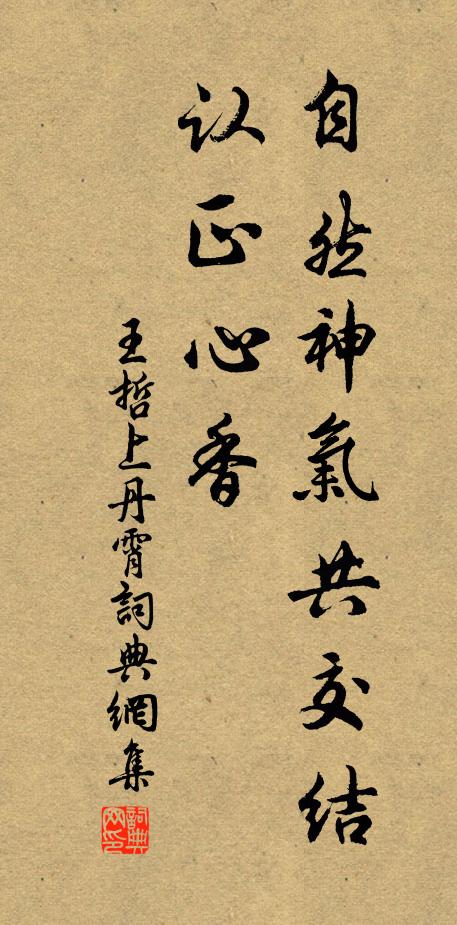 自然神氣共交結
认正心香
王哲上丹霄詞典網集
詞典网印